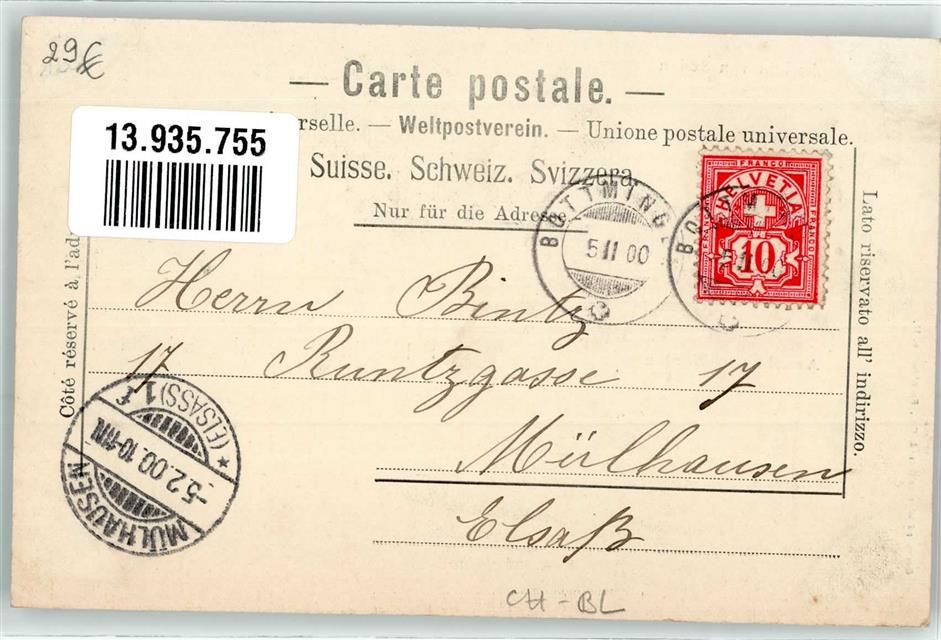 29€
— Carte postale. —
13.935.755
rselle. — Weltpostverein. — Unione postale universale.
Suisse. Schweiz. Svizzera
Nur für die Adresse.
Côté réservé à l'ad
Lato riservato all' indirizzo.
BOTTMING
5 II 00
FRANCO
HELVETIA
FRANCO
FRANCO
10
Herrn Bintz
17 Runtzgasse 17
Mülhausen
Elsaß
MÜLHAUSEN
-5.2.00. 10-11N.
* (ELSASS) 1 f
CH - BL